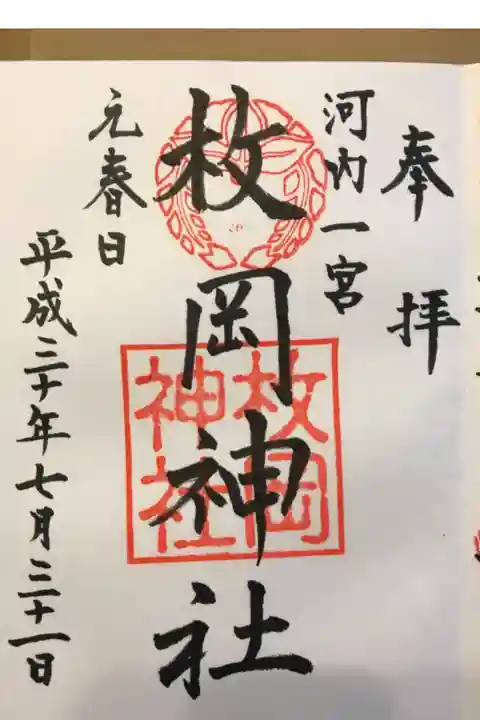 奉拝
河内一宮
枚岡神社
枚岡
神社
元春日
平成三十年七月三十一日